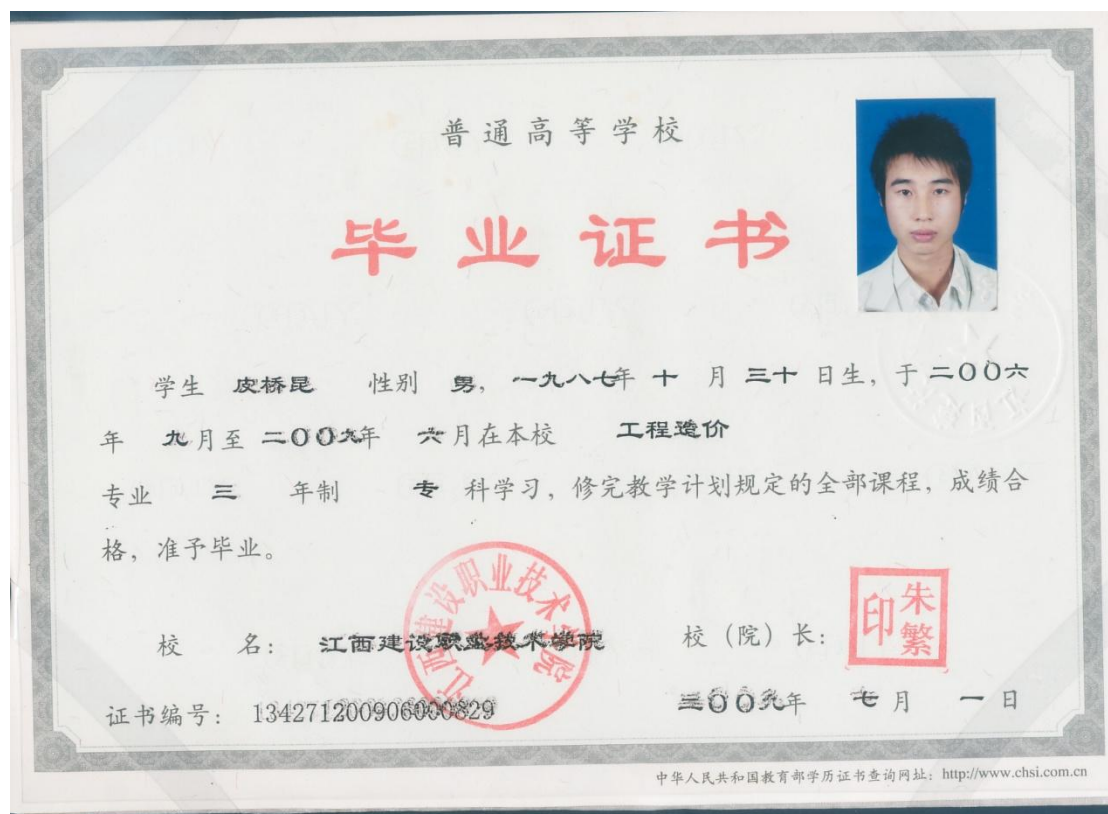 普通高等学校
毕业证书
学生 皮桥昆 性别 男，一九八七年 十 月 三十 日生，于 二〇〇六
年 九月至 二〇〇九年 六月在本校 工程造价
专业 三 年制 专 科学习，修完教学计划规定的全部课程，成绩合
格，准予毕业。
江西建设职业技术学院
校 名：江西建设职业技术学院 校（院）长：
朱繁印
证书编号：134271200906000829 二〇〇九年 七月 一日
中华人民共和国教育部学历证书查询网址：http://www.chsi.com.cn